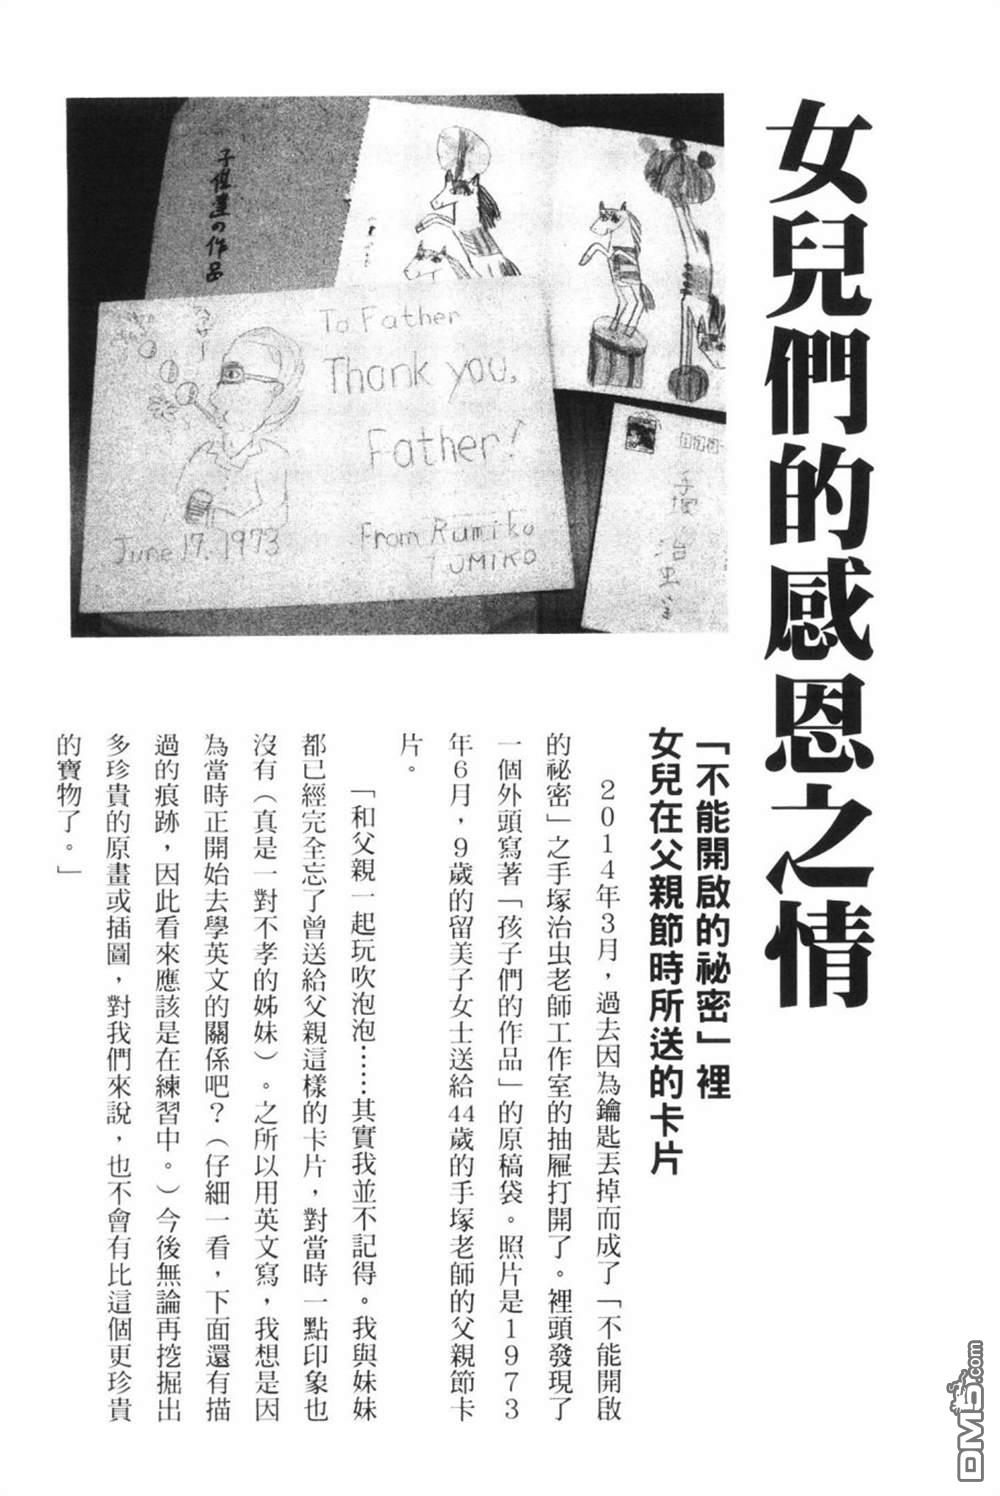 女兒們的感恩之情
子供達の作品
To Father
Thank you,
Father!
June 17. 1973
From Rumiko
YUMIKO
「不能開啟的祕密」裡
女兒在父親節時所送的卡片
2014年3月，過去因為鑰匙丟掉而成了「不能開啟
的祕密」之手塚治虫老師工作室的抽屜打開了。裡頭發現了
一個外頭寫著「孩子們的作品」的原稿袋。照片是1973
年6月，9歲的留美子女士送給44歲的手塚老師的父親節卡
片。
「和父親一起玩吹泡泡……其實我並不記得。我與妹妹
都已經完全忘了曾送給父親這樣的卡片，對當時一點印象也
沒有（真是一對不孝的姊妹）。之所以用英文寫，我想是因
為當時正開始去學英文的關係吧？（仔細一看，下面還有描
過的痕跡，因此看來應該是在練習中。）今後無論再挖掘出
多珍貴的原畫或插圖，對我們來說，也不會有比這個更珍貴
的寶物了。」
DM5.com